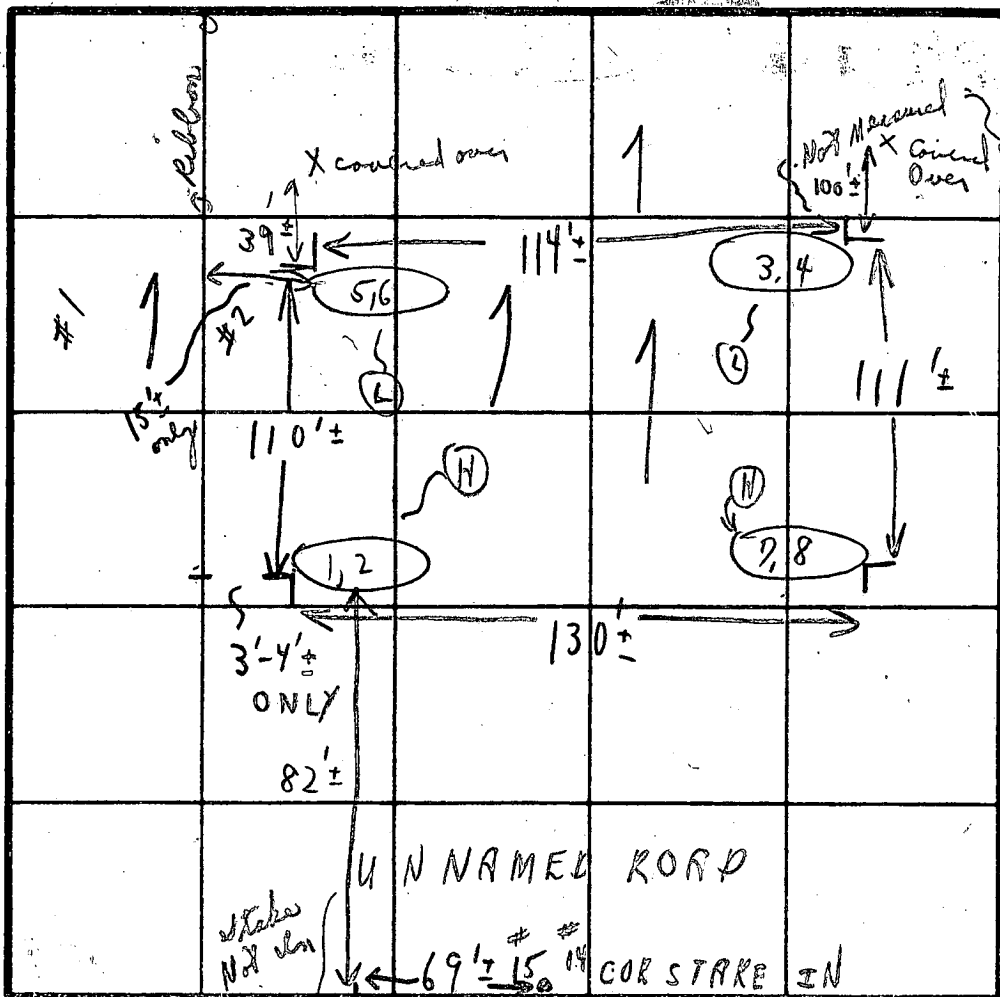 Ribbon
X covered over
Not Measured
100'±
X Covered
Over
39'±
114'±
5,6
3,4
#1
#2
L
111'±
15'±
only
110'±
H
H
1,2
7,8
130'±
3'-4'±
ONLY
82'±
UNNAMED ROAD
Stake
Not In
69'± #15 #14 COR STAKE IN